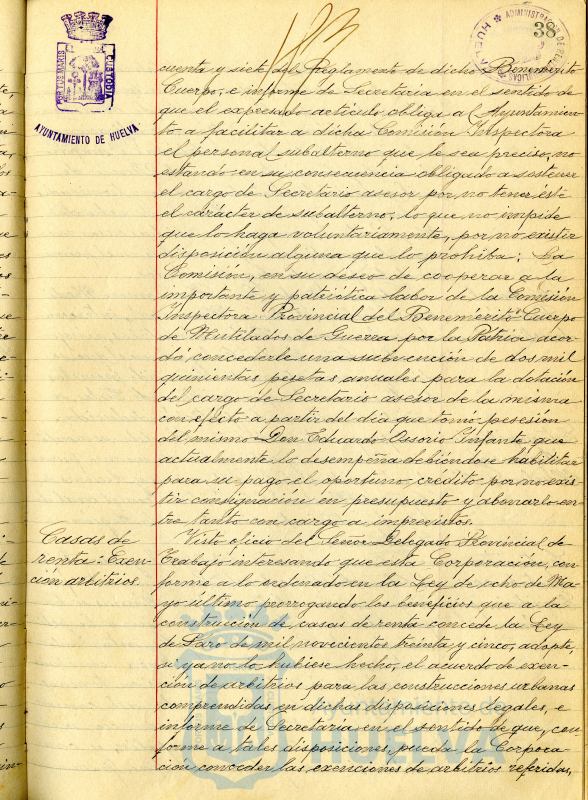 38
POR TUS MARIS
CUSTODIT
AYUNTAMIENTO DE HUELVA
ADMINISTRACION DE
HUELVA
cuenta y siete del Reglamento de dicho Benemérito
Cuerpo, e informe de Secretaria en el sentido de
que el expresado artículo obliga al Ayuntamien-
to a facilitar a dicha Comisión Inspectora
el personal subalterno que le sea preciso, no
estando en su consecuencia obligado a sostener
el cargo de Secretario asesor por no tener éste
el carácter de subalterno, lo que no impide
que lo haga voluntariamente, por no existir
disposición alguna que lo prohiba; La
Comisión, en su deseo de cooperar a la
importante y patriótica labor de la Comisión
Inspectora Provincial del Benemérito Cuerpo
de Mutilados de Guerra por la Patria acor-
dó concederle una subvención de dos mil
quinientas pesetas anuales para la dotación
del cargo de Secretario asesor de la misma
con efecto a partir del dia que tomó posesión
del mismo Don Eduardo Ossorio Infante que
actualmente lo desempeña debiéndose habilitar
para su pago el oportuno crédito por no exis-
tir consignación en presupuesto y abonarlo en-
tre tanto con cargo a imprevistos.
Casas de
renta: Exen-
ción arbitrios.
Visto oficio del Señor Delegado Provincial de
Trabajo interesando que esta Corporación, con-
forme a lo ordenado en la Ley de ocho de Ma-
yo último prorrogando los beneficios que a la
construcción de casas de renta concede la Ley
de Paro de mil novecientos treinta y cinco, adopte,
si ya no lo hubiese hecho, el acuerdo de exen-
ción de arbitrios para las construcciones urbanas
comprendidas en dichas disposiciones legales, e
informe de Secretaria en el sentido de que, con-
forme a tales disposiciones, pueda la Corpora-
ción conceder las exenciones de arbitrios referidas,
HUELVA